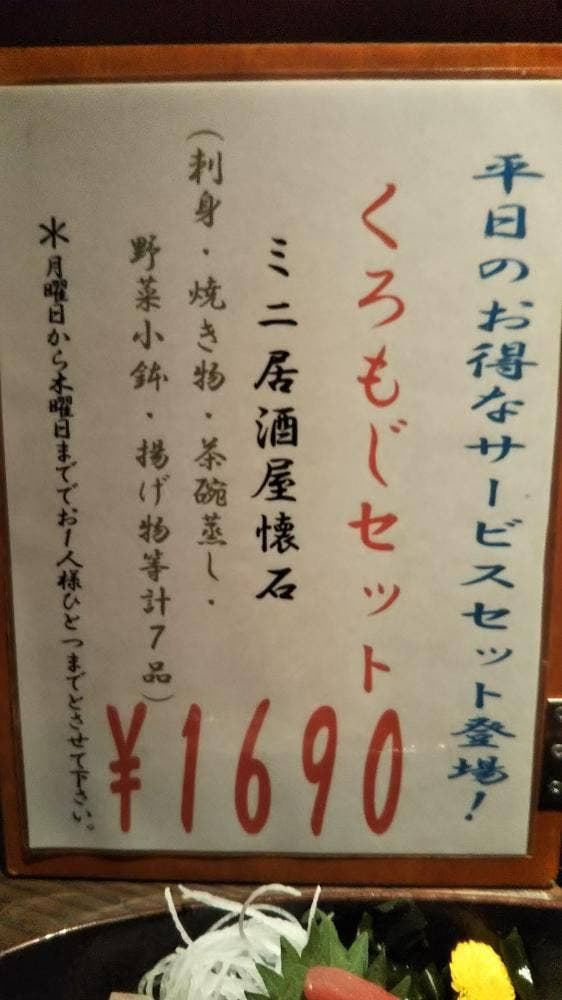 平日のお得なサービスセット登場!
くろもじセット
ミニ居酒屋懐石
(刺身・焼き物・茶碗蒸し・
野菜小鉢・揚げ物等計7品)
¥1690
＊月曜日から木曜日まででお1人様ひとつまでとさせて下さい。